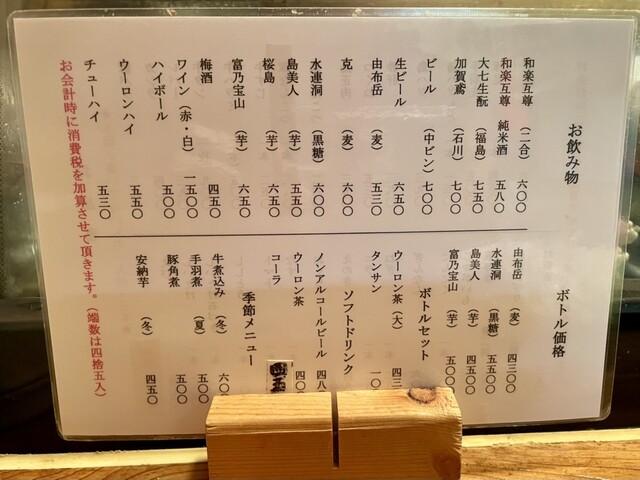 お飲み物
和楽互尊 (二合) 六〇〇
和楽互尊 純米酒 五八〇
大七生酛 (福島) 七五〇
加賀鳶 (石川) 七〇〇
ビール (中ビン) 七〇〇
生ビール 六五〇
由布岳 (麦) 五三〇
克 (麦) 六〇〇
水連洞 (黒糖) 六〇〇
島美人 (芋) 五五〇
桜島 (芋) 六五〇
富乃宝山 (芋) 六五〇
梅酒 四五〇
ワイン (赤・白) 一五〇〇
ハイボール 五〇〇
ウーロンハイ 五五〇
チューハイ 五三〇
ボトル価格
由布岳 (麦) 四三〇〇
水連洞 (黒糖) 五五〇〇
島美人 (芋) 四五〇〇
富乃宝山 (芋) 五〇〇〇
ボトルセット
ウーロン茶 (大) 四三
タンサン 一〇
ソフトドリンク
ノンアルコールビール 四八
ウーロン茶 四〇
コーラ
季節メニュー
牛煮込み (冬) 六〇
手羽煮 (夏) 五〇〇
豚角煮 五〇〇
安納芋 (冬) 四五〇
お会計時に消費税を加算させて頂きます。(端数は四捨五入)